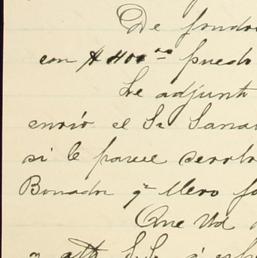 De fondo
con $400.00 puedo
Le adjunt
envió el Sr. Sana
si le parece devolv
Bonador qe llevo fo
Que Ud